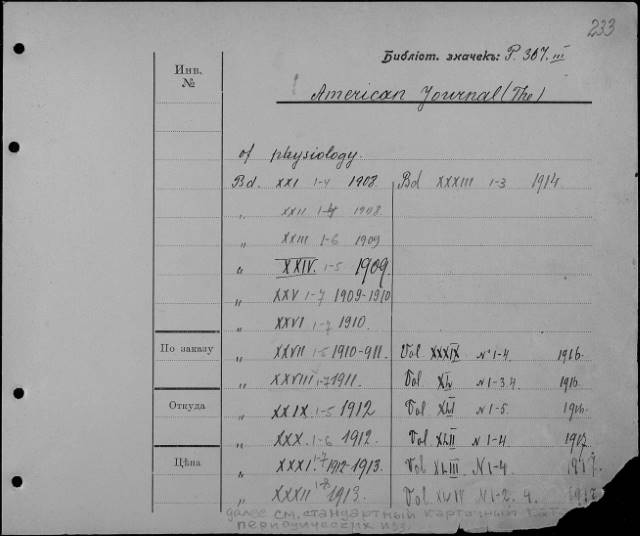 233
Библіот. значекъ: P. 307. III
Инв.
№
American Journal (The)
of physiology.
Bd. XXI 1-4 1908. Bd XXXIII 1-3 1914.
„ XXII 1-4 1908.
„ XXIII 1-6 1909
„ XXIV. 1-5 1909.
„ XXV 1-7 1909-1910
„ XXVI 1-7 1910.
По заказу „ XXVII 1-5 1910-911. Vol XXXIX №1-4. 1916.
„ XXVIII 1-7 1911. Vol XL №1-3.4. 1916.
Откуда „ XXIX 1-5 1912 Vol XLI №1-5. 1916.
„ XXX. 1-6 1912. Vol XLII №1-4. 1917.
Цѣна „ XXXI. 1-7 1912-1913. Vol XLIII №1-4. 1917.
„ XXXII 1-8 1913. Vol XLIV №1-2. 4. 1917
далее см. стандартный карточный
периодических изд.